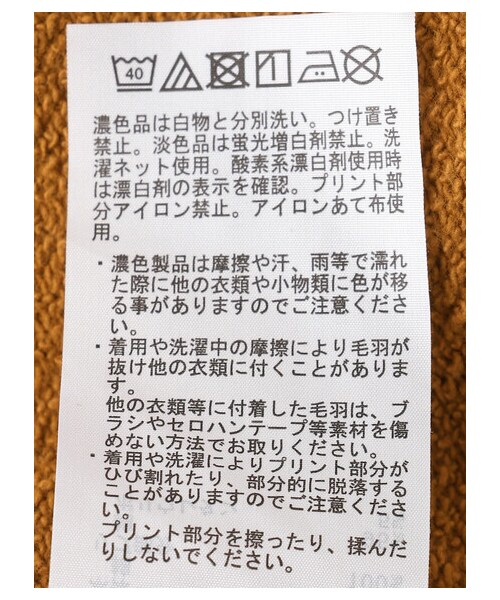 40
濃色品は白物と分別洗い。つけ置き
禁止。淡色品は蛍光増白剤禁止。洗
濯ネット使用。酸素系漂白剤使用時
は漂白剤の表示を確認。プリント部
分アイロン禁止。アイロンあて布使
用。
・濃色製品は摩擦や汗、雨等で濡れ
た際に他の衣類や小物類に色が移
る事がありますのでご注意くださ
い。
・着用や洗濯中の摩擦により毛羽が
抜け他の衣類に付くことがありま
す。
他の衣類等に付着した毛羽は、ブ
ラシやセロハンテープ等素材を傷
めない方法でお取りください。
・着用や洗濯によりプリント部分が
ひび割れたり、部分的に脱落する
ことがありますのでご注意くださ
い。
プリント部分を擦ったり、揉んだ
りしないでください。